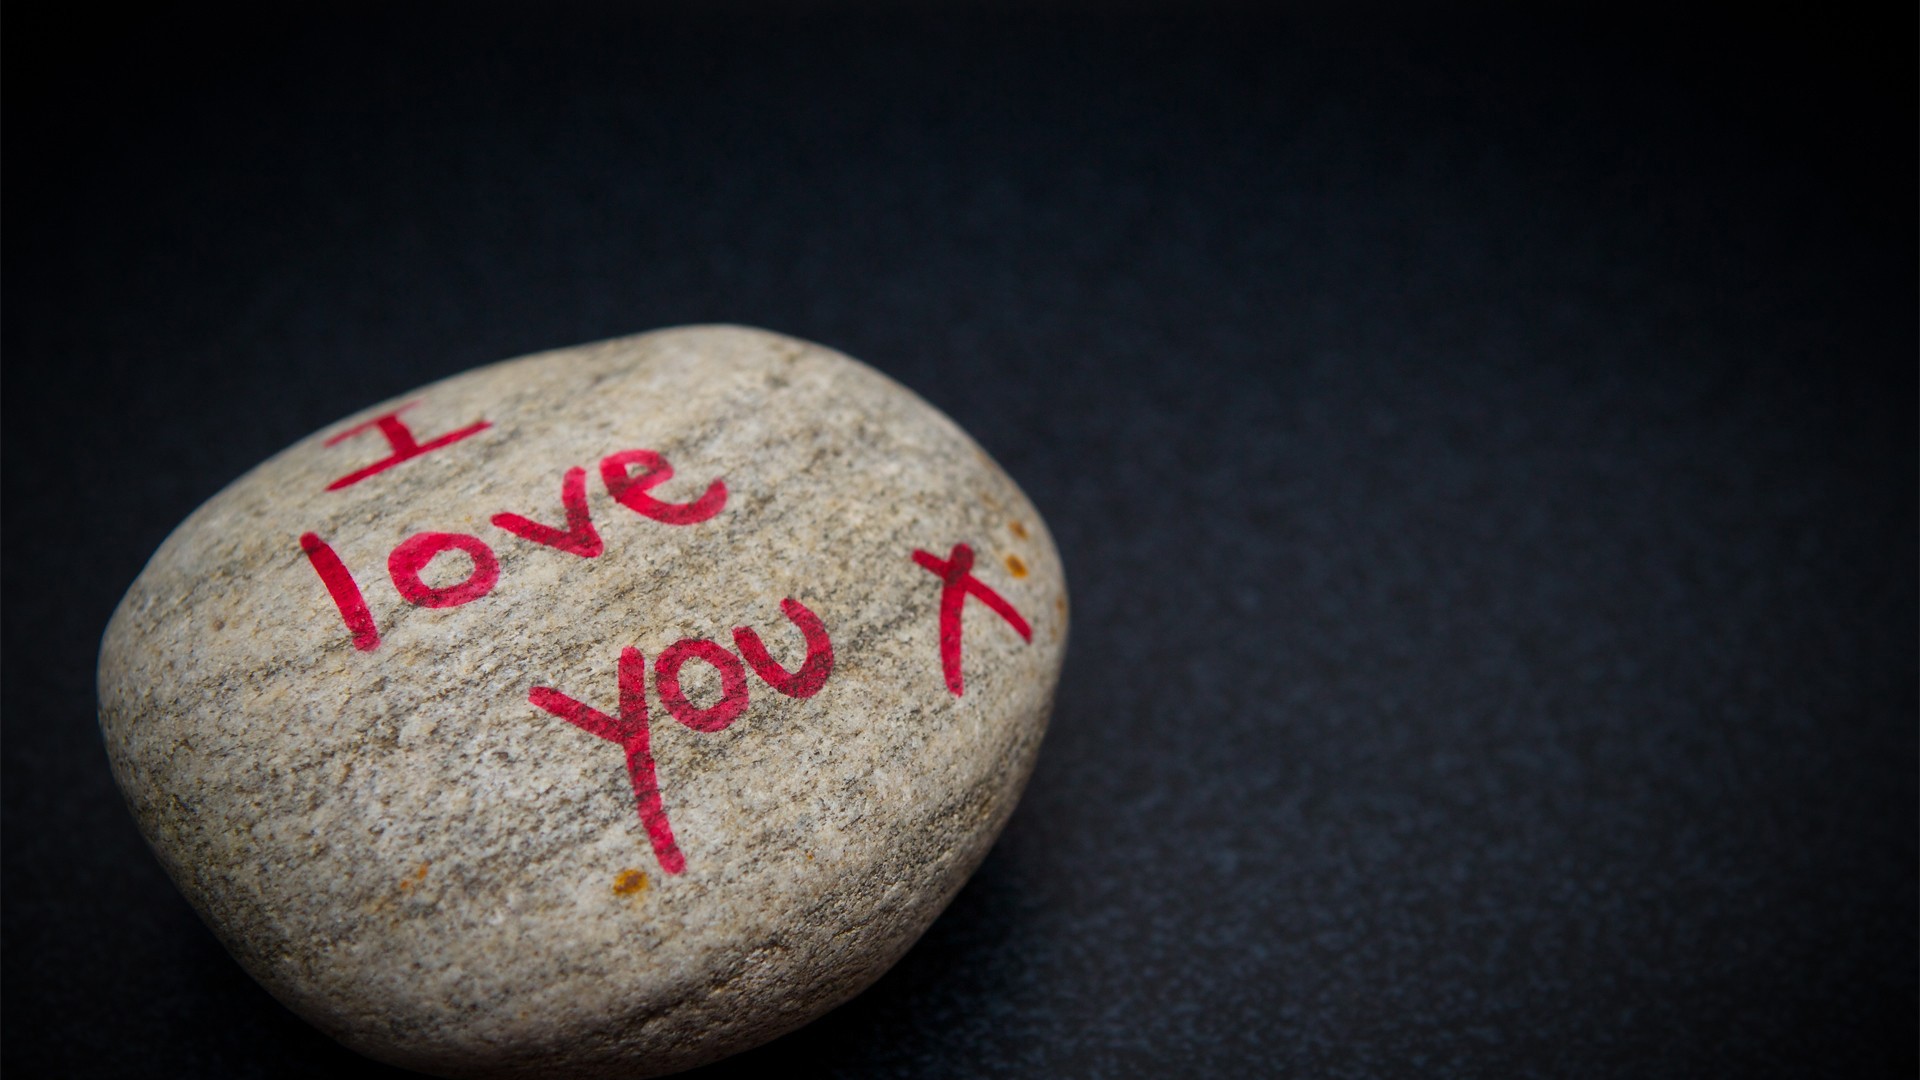 I
love
you x